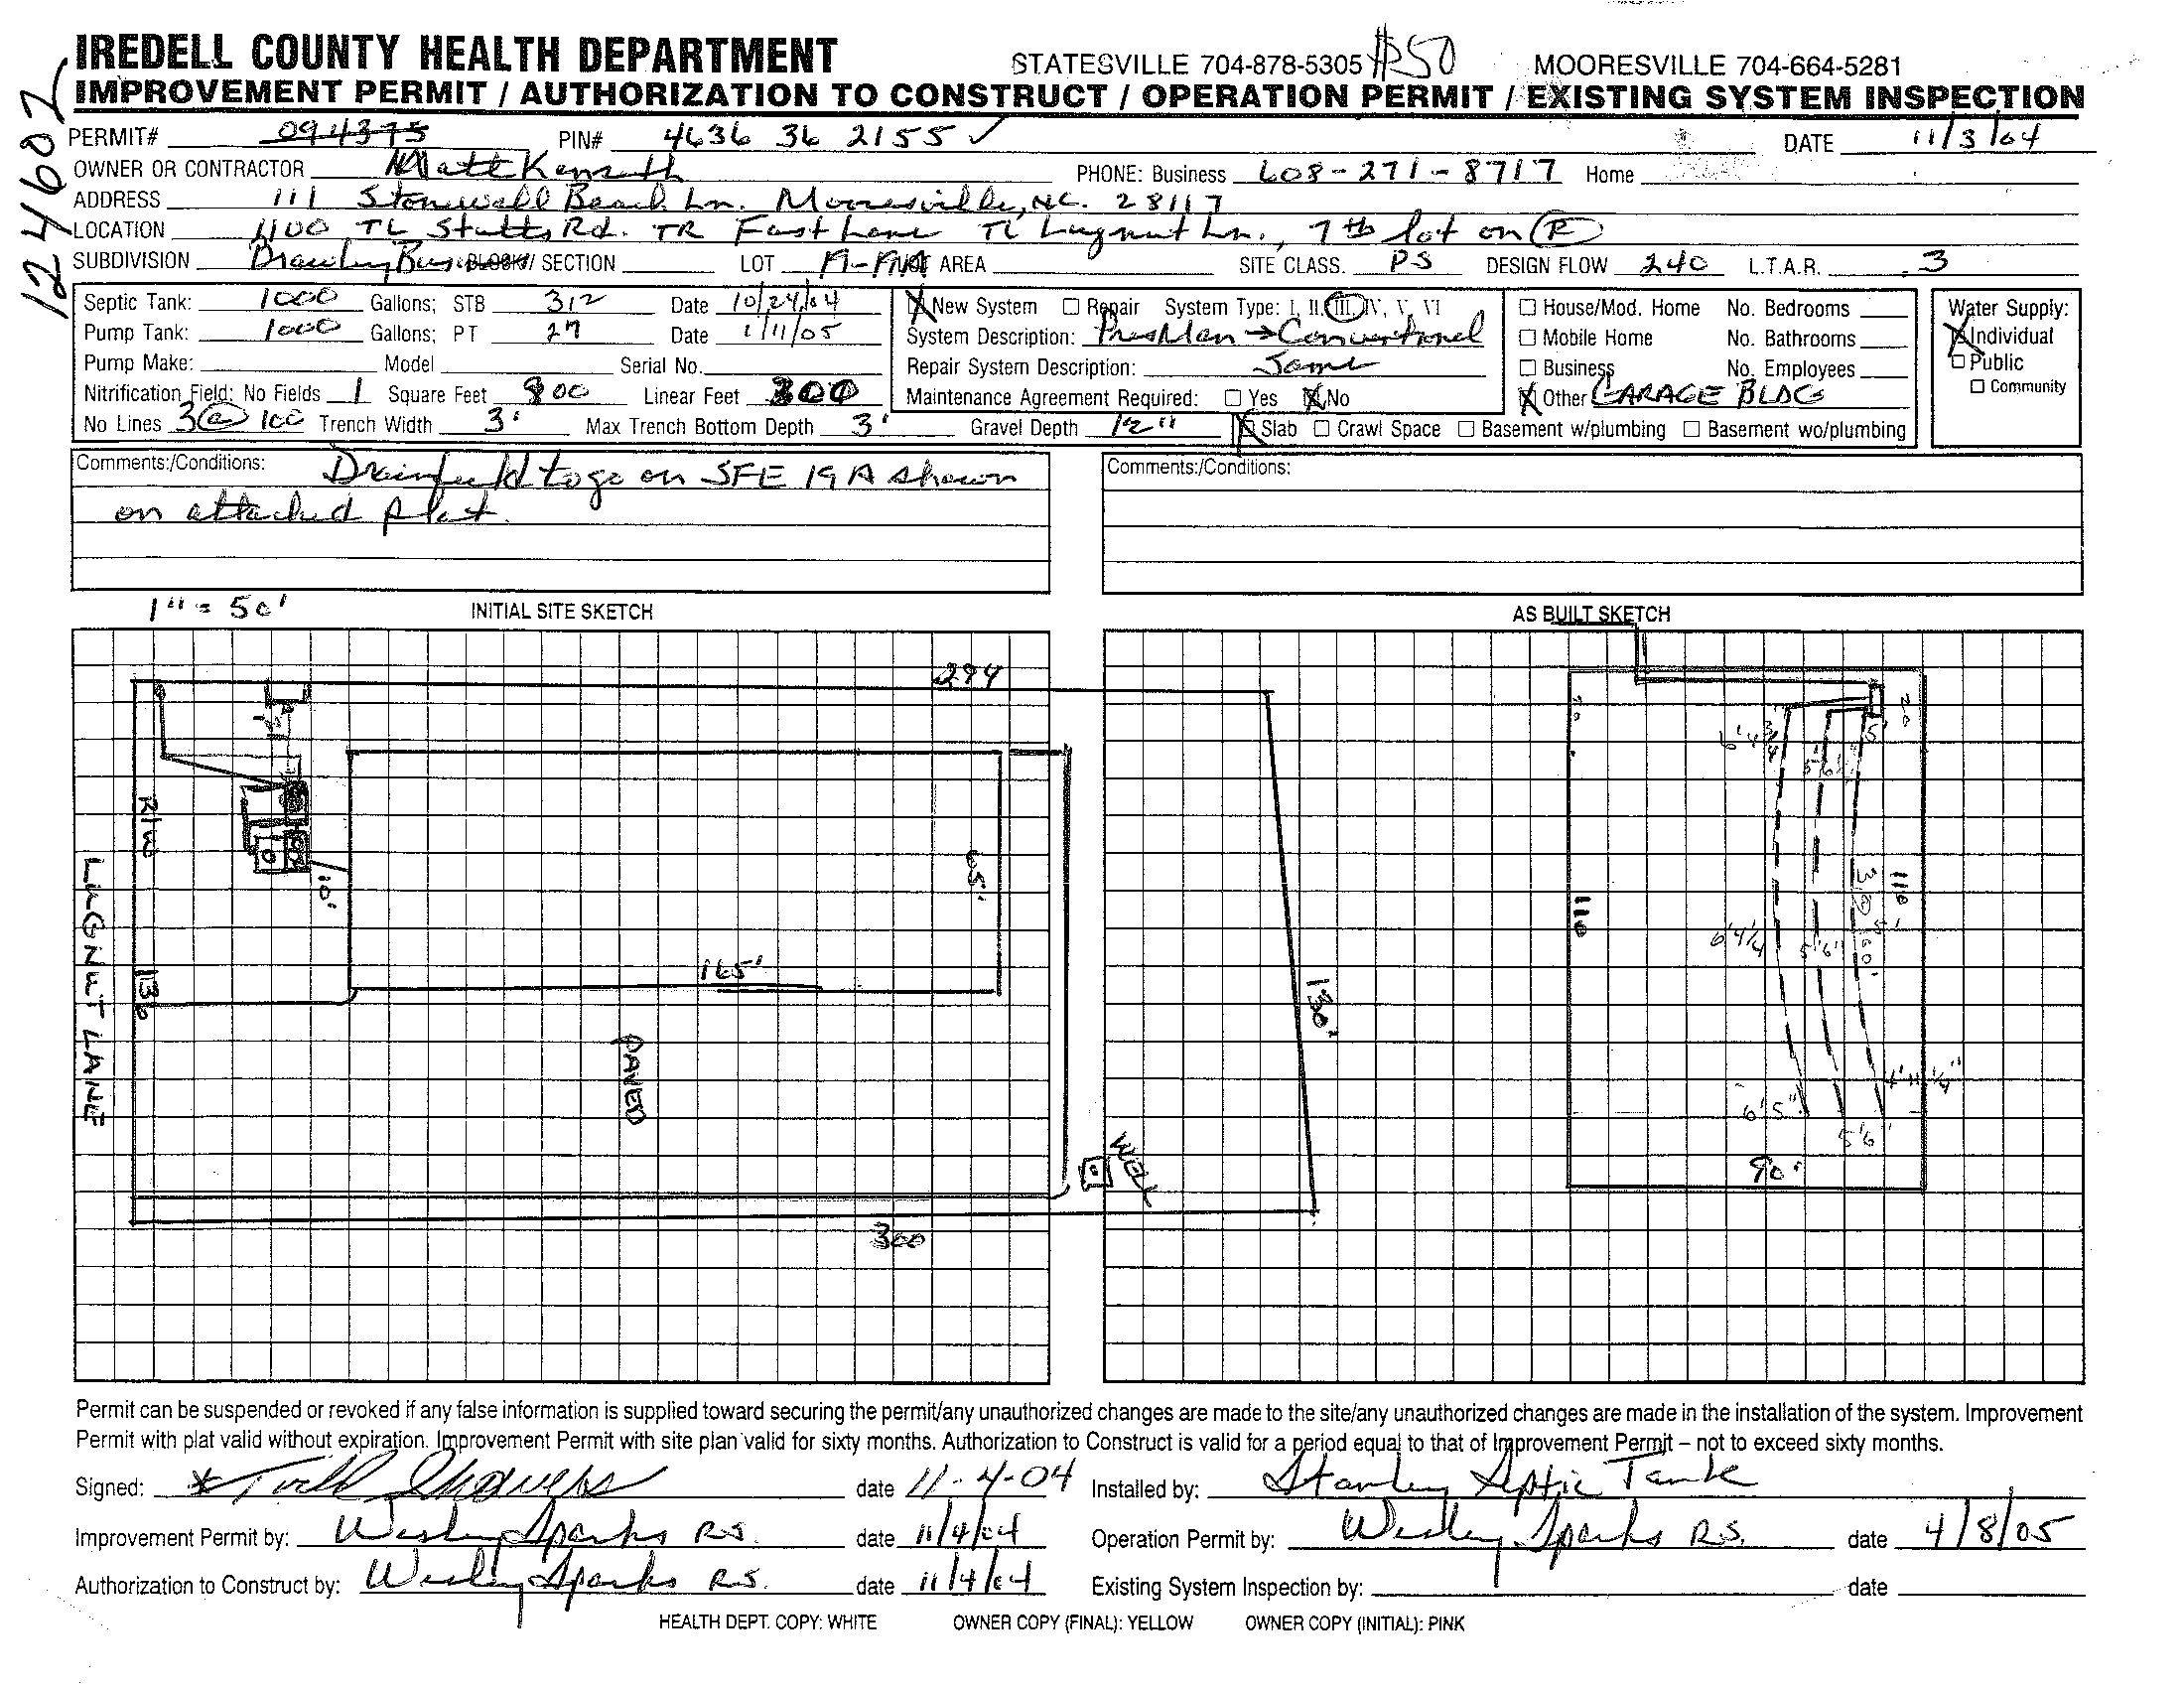 IREDELL COUNTY HEALTH DEPARTMENT STATESVILLE 704-878-5305 $50 MOORESVILLE 704-664-5281
IMPROVEMENT PERMIT / AUTHORIZATION TO CONSTRUCT / OPERATION PERMIT / EXISTING SYSTEM INSPECTION
124602
PERMIT# 094375 PIN# 4636 36 2155 ✓ DATE 11/3/04
OWNER OR CONTRACTOR Matt Kenseth PHONE: Business 608-271-8717 Home
ADDRESS 111 Stonewall Beach Ln. Mooresville, NC. 28117
LOCATION 1100 TL Stutts Rd. TR Fast Lane TL Lugnut Ln., 7th lot on (R)
SUBDIVISION Brawley Bus BLOCK/ SECTION LOT AREA SITE CLASS. PS DESIGN FLOW 240 L.T.A.R. .3
Septic Tank: 1000 Gallons; STB 312 Date 10/24/04
Pump Tank: 1000 Gallons; PT 27 Date 1/11/05
Pump Make: Model Serial No.
Nitrification Field: No Fields 1 Square Feet 800 Linear Feet 300
No Lines 3@100 Trench Width 3' Max Trench Bottom Depth 3' Gravel Depth 12"
X New System Repair System Type: I, II, III, IV, V, VI
System Description: Pres Man → Conventional
Repair System Description: Same
Maintenance Agreement Required: Yes X No
House/Mod. Home No. Bedrooms
Mobile Home No. Bathrooms
Business No. Employees
X Other GARAGE BLDG
X Slab Crawl Space Basement w/plumbing Basement wo/plumbing
Water Supply:
X Individual
Public
Community
Comments:/Conditions: Drainfield to go on SFE 19A shown
on attached plat.
Comments:/Conditions:
1" = 50' INITIAL SITE SKETCH
294
R/W
LUGNUT LANE
136
10'
65'
165'
PAVED
130'
WELL
300
AS BUILT SKETCH
20
20
6'4 3/4
5'6"
5'
110
110
3@100'
6'4 1/4
5'6"
5'
4'11 1/4"
6'5"
5'6"
90'
Permit can be suspended or revoked if any false information is supplied toward securing the permit/any unauthorized changes are made to the site/any unauthorized changes are made in the installation of the system. Improvement
Permit with plat valid without expiration. Improvement Permit with site plan valid for sixty months. Authorization to Construct is valid for a period equal to that of Improvement Permit – not to exceed sixty months.
Signed: * date 11-4-04 Installed by: Stanley Septic Tank
Improvement Permit by: Wesley Sparks R.S. date 11/4/04 Operation Permit by: Wesley Sparks R.S. date 4/8/05
Authorization to Construct by: Wesley Sparks R.S. date 11/4/04 Existing System Inspection by: date
HEALTH DEPT. COPY: WHITE OWNER COPY (FINAL): YELLOW OWNER COPY (INITIAL): PINK